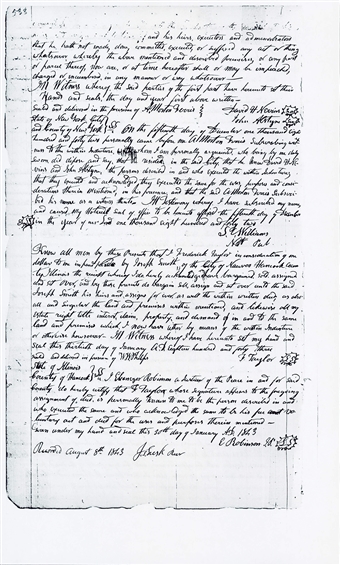 and his heirs, executors and administrators
that he hath not made, done, committed, executed or suffered any act or thing
whatsoever whereby the above mentioned and described premises, or any part
or parcel thereof, now are, or at any time hereafter shall or may be impeached,
charged or encumbered in any manner or way whatsoever
In Witness whereof the said parties of the first part have hereunto set their
Hands and seals, the day and year first above written
Sealed and delivered in the presence of A. Morton Ferris David W. Kevins
State of New York City John
and County of New York On the fifteenth day of December one thousand eight
hundred and forty two personally came before me A. Morton Ferris subscribing wit
ness to the within who being by me duly
sworn did depose and say, that he resided in the said City, that he knew David W. K
vins and John the persons described in and who executed the within
that they executed and acknowledged they executed the same for the uses, purposes and consi
derations therein mentioned, in his presence, and that he said A. Morton Ferris subscri
bed his name as a witness thereto. In Testimony whereof I have subscribed my name
and caused my Notarial seal of office to be hereunto affixed the fifteenth day of December
in the year of our Lord one thousand eight hundred and forty two
S. Williams
Not Pub
Know all men by these presents that I Frederick Taylor in consideration of one
dollar to me in hand paid by Joseph Smith of the City of Nauvoo Hancock Coun
ty Illinois the receipt whereof is hereby acknowledged have bargained, sold, assigned
and set over, and by these presents do bargain, sell, assign and set over unto the said
Joseph Smith his heirs and assigns for ever, as well the within written deed, as also
all and singular the land and premises within mentioned, and likewise all my
estate right title interest, claim, property, and demand of in and to the same
land and premises which I now have either by means of the within Indenture
or otherwise howsoever. In Witness whereof I have hereunto set my hand and
seal this thirtieth day of January A.D. eighteen hundred and forty three
Sealed and delivered in presence of W. W. Phelps F. Taylor
State of Illinois
County of Hancock I Ebenezer Robinson a Justice of the Peace in and for said
County do hereby certify that F. Taylor, whose signature appears to the foregoing
assignment of deed, is personally known to me to be the person described in and
who executed the same and who acknowledged the same to be his free and vo
luntary act and deed for the uses and purposes therein mentioned
Given under my hand and seal this 30th day of January A.D. 1843
E. Robinson J.P.
Recorded August 8th 1843